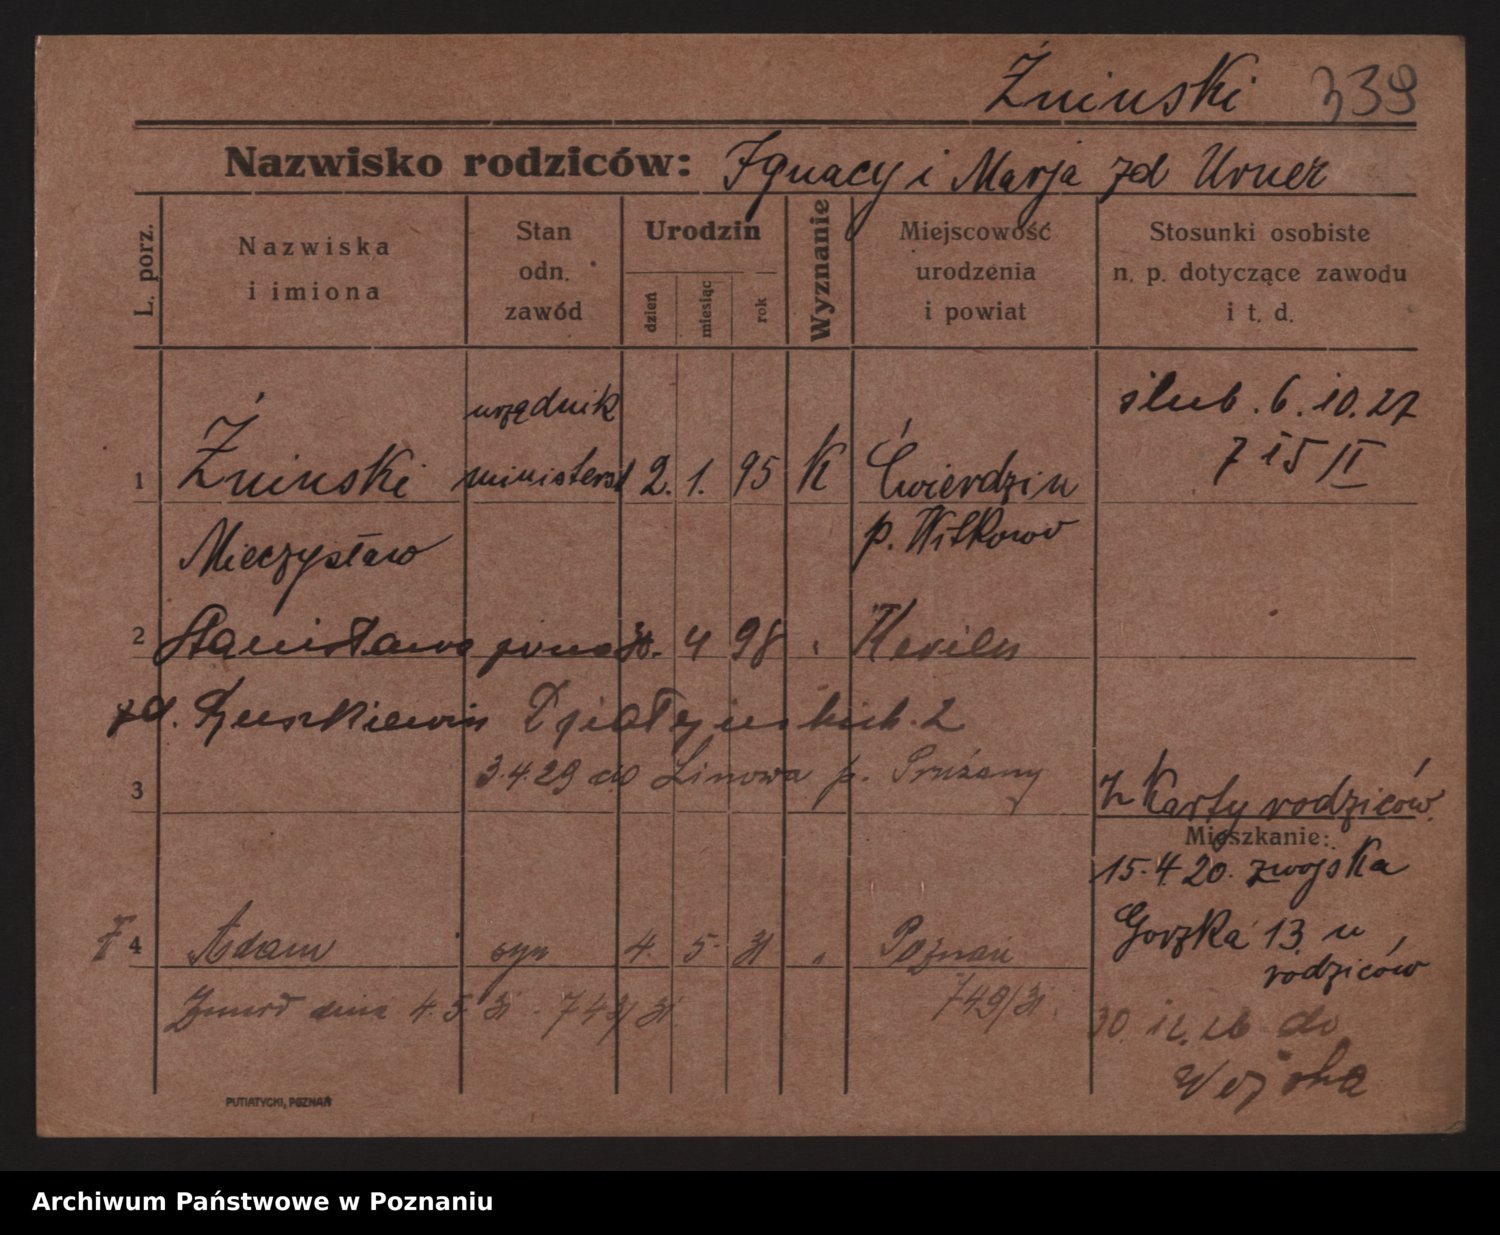 Żninski 339
Nazwisko rodziców: Ignacy i Marja zd Urner
L. porz.
Nazwiska
i imiona
Stan
odn.
zawód
Urodzin
dzień
miesiąc
rok
Wyznanie
Miejscowość
urodzenia
i powiat
Stosunki osobiste
n. p. dotyczące zawodu
i t. d.
urzędnik
ślub. 6.10.27
1 Żninski ministerst 2. 1. 95 K Ćwierdzin
715/II
Mieczysław p. Witkowo
2 Stanisława żona 30. 4 98 "
zd. Działyńskich. 2
3.4.29 do Linowa p. Prużany
3
Z Karty rodziców.
Mieszkanie:
15.4.20. z wojska
Gorzka 13 u
rodziców
4 Adam syn 4. 5. 31 " Poznań
749/31.
Zmarł dnia 4.5.31 - 749/31.
30. 12. 26 do
Wojska
PUTIATYCKI, POZNAŃ
Archiwum Państwowe w Poznaniu